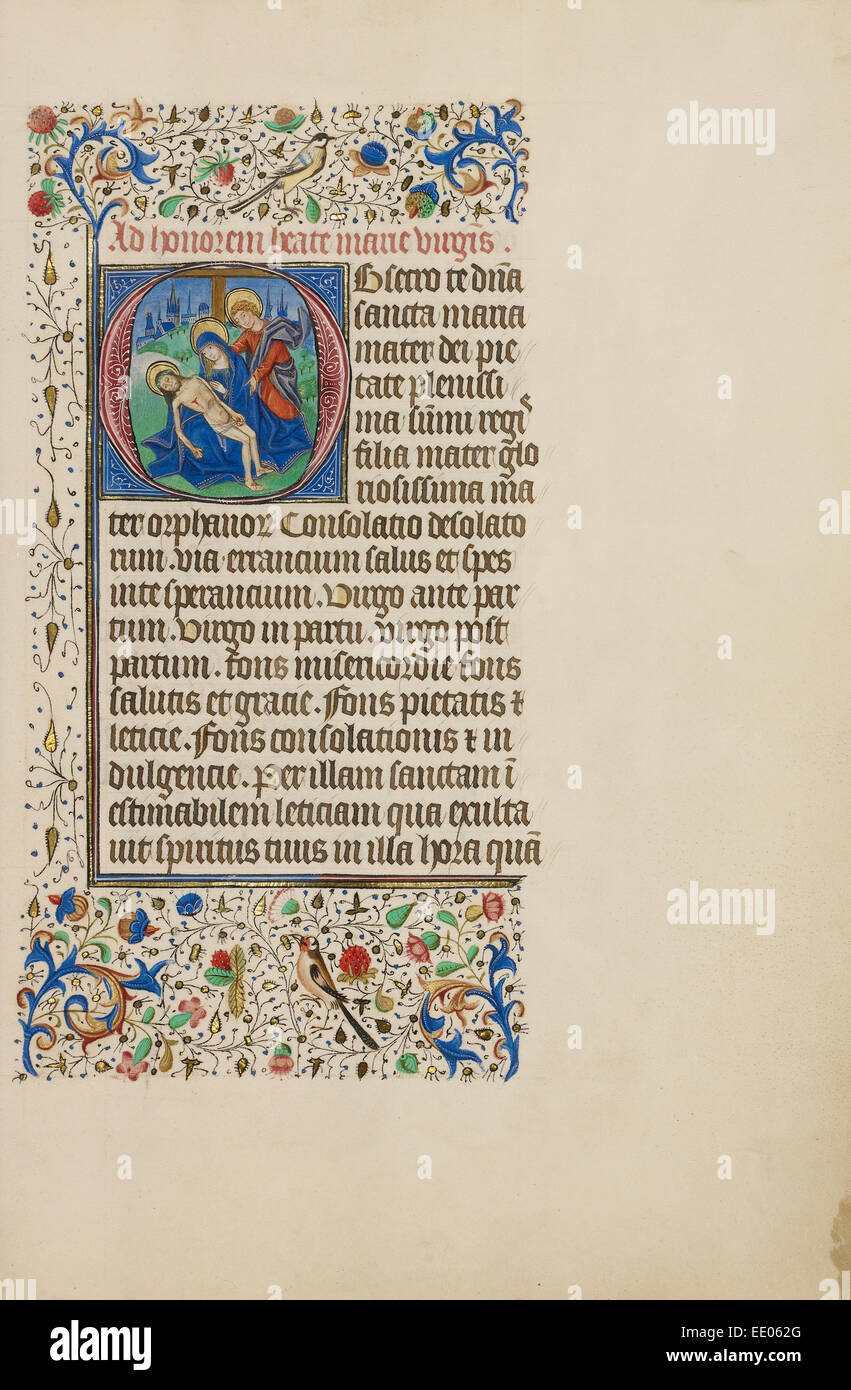 Ad honorem beate marie virgīs .
Obsecro te dn̄a
sancta maria
mater dei pie
tate plenissi
ma sūmi regis
filia mater glo
riosissima ma
ter orphanoꝝ Consolatio desolato
rum . via errancium salus et spes
in te sperancium . Virgo ante par
tum . Virgo in partu . virgo post
partum . fons misericordie fons
salutis et gracie . Fons pietatis ⁊
leticie . Fons consolationis ⁊ in
dulgencie . Per illam sanctam ī
estimabilem leticiam qua exulta
uit spiritus tuus in illa hora quā
alamy
alamy
Image ID: EE062G
www.alamy.com